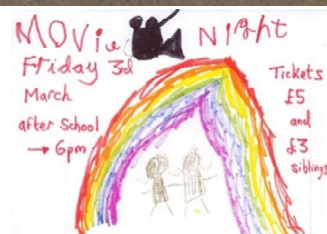 MOVie NIght
Friday 3rd
March
after School
→ 6pm
Tickets
£5
and
£3
siblings